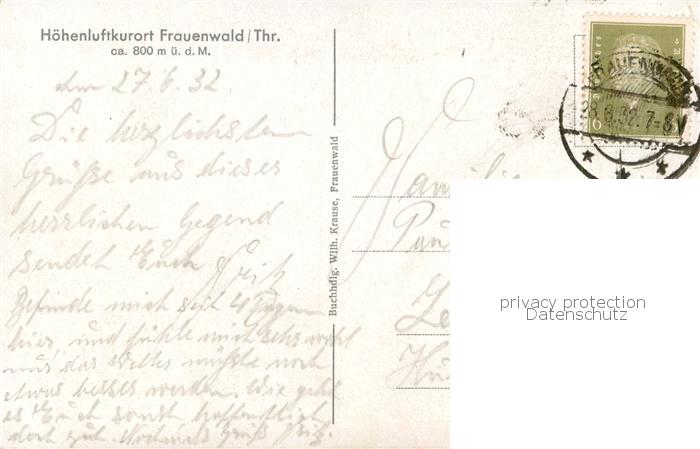 Höhenluftkurort Frauenwald/Thr.
ca. 800 m ü. d. M.
27/6. 32.
Die herzlichsten
Grüße aus dieses
herrlichen Gegend
sendet Euch Fritz
Befinde mich seit Tagen
hier und fühle mich sehr wohl
nur das Wetter müßte noch
etwas besser werden. Wie geht
es Euch sonst hoffentlich
doch gut. Nochmals Gruß Fritz.
Buchhdlg. Wilh. Krause, Frauenwald
Familie
FRAUENW
6.32.7-8V
6
privacy protection
Datenschutz